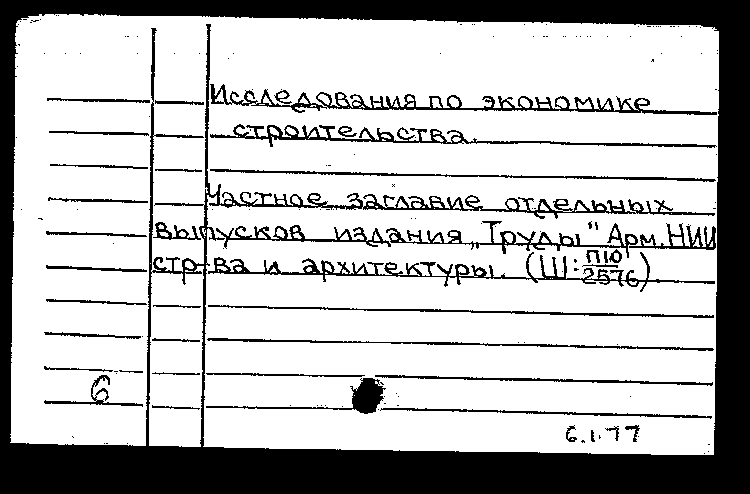 Исследования по экономике
строительства.
Частное заглавие отдельных
выпусков издания „Труды" Арм. НИИ
стр-ва и архитектуры. (Ш: П10/2576).
6
6.1.77